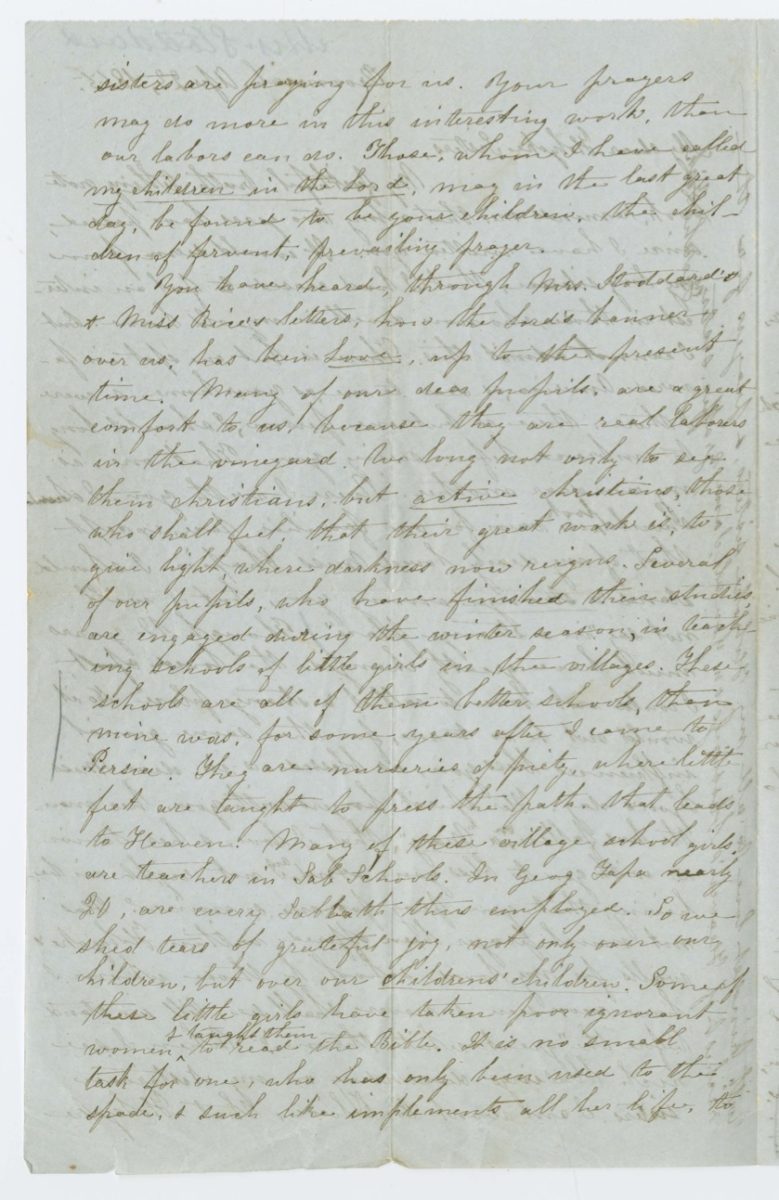 sisters are praying for us. Your prayers
may do more in this interesting work, than
our labors can do. Those, whom I have called
my children in the Lord, may in the last great
day, be found to be your children, the chil-
dren of fervent, prevailing prayer.
You have heard, through Mrs. Stoddard's
& Miss Rice's letters, how the Lord's banner
over us, has been Love, up to the present
time. Many of our dear pupils, are a great
comfort to us, because they are real laborers
in the vineyard. We long not only to see
them christians, but active christians, those
who shall feel, that their great work is, to
give light, where darkness now reigns. Several
of our pupils, who have finished their studies,
are engaged during the winter season, in teach-
ing schools of little girls in the villages. These
schools are all of them better schools, than
mine was, for some years after I came to
Persia. They are nurseries of piety, where little
feet are taught to press the path that leads
to Heaven. Many of these village school girls,
are teachers in Sab Schools. In Geog Tapa nearly
20, are every Sabbath thus employed. So we
shed tears of grateful joy, not only over our
children, but over our childrens' children. Some of
these little girls have taken poor ignorant
women & taught them to read the Bible. It is no small
task for one, who has only been used to the
spade, & such like implements all her life, to